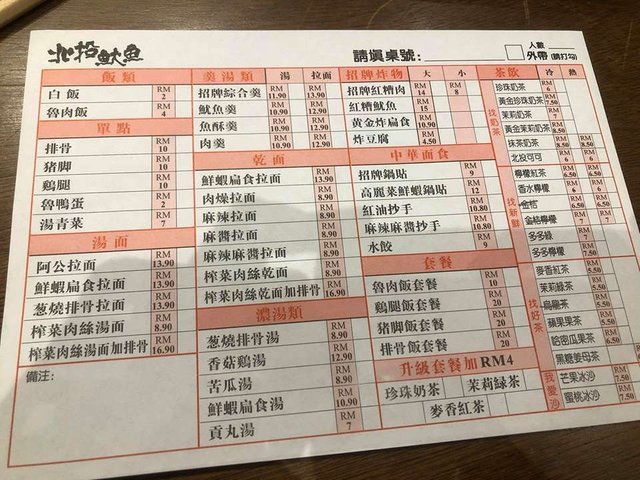 北投魷魚
請填桌號:
人數
外帶 (請打勾)
飯類
白飯 RM 2
魯肉飯 RM 4
單點
排骨 RM 10
豬脚 RM 10
鷄腿 RM 10
魯鴨蛋 RM 2
湯青菜 RM 7
湯面
阿公拉面 RM 13.90
鮮蝦扁食拉面 RM 13.90
葱燒排骨拉面 RM 13.90
榨菜肉絲湯面 RM 8.90
榨菜肉絲湯面加排骨 RM 16.90
備注:
羹湯類 湯 拉面
招牌綜合羹 RM 11.90 RM 13.90
魷魚羹 RM 10.90 RM 12.90
魚酥羹 RM 10.90 RM 12.90
肉羹 RM 10.90 RM 12.90
乾面
鮮蝦扁食拉面 RM 13.90
肉燥拉面 RM 8.90
麻辣拉面 RM 8.90
麻醬拉面 RM 8.90
麻辣麻醬拉面 RM 8.90
榨菜肉絲乾面 RM 8.90
榨菜肉絲乾面加排骨 RM 16.90
濃湯類
葱燒排骨湯 RM 8.90
香菇鷄湯 RM 12.90
苦瓜湯 RM 8.90
鮮蝦扁食湯 RM 10.90
貢丸湯 RM 7
招牌炸物 大 小
招牌紅糟肉 RM 14 RM 8
紅糟魷魚 RM 15
黃金炸扁食 RM 10.90
炸豆腐 RM 4.50
中華面食
招牌鍋貼 RM 9
高麗菜鮮蝦鍋貼 RM 12
紅油抄手 RM 10.80
麻辣麻醬抄手 RM 10.80
水餃 RM 9
套餐
魯肉飯套餐 RM 10
鷄腿飯套餐 RM 20
豬脚飯套餐 RM 20
排骨飯套餐 RM 20
升級套餐加RM4
珍珠奶茶 茉莉綠茶
麥香紅茶
茶飲 冷 熱
找奶茶
珍珠奶茶 RM 6
黃金珍珠奶茶 RM 7.50
茉莉奶茶 RM 7
黃金茉莉奶茶 RM 8.50
抹茶奶茶 RM 8.50 RM 6.50
北投可可 RM 6 RM 6
找新鮮
檸檬紅茶 RM 6 RM 6
香水檸檬 RM 6
金桔 RM 6.50 RM 6.50
金桔檸檬 RM 7 RM 7
多多綠 RM 6
多多檸檬 RM 7.50
找好茶
麥香紅茶 RM 5.50
茉莉綠茶 RM 5.50
烏龍茶 RM 5.50
蘋果果茶 RM 6.50
哈密瓜果茶 RM 6.50
黑糖姜母茶
我愛沙
芒果冰沙 RM 7.50
蜜桃冰沙 RM 7.50